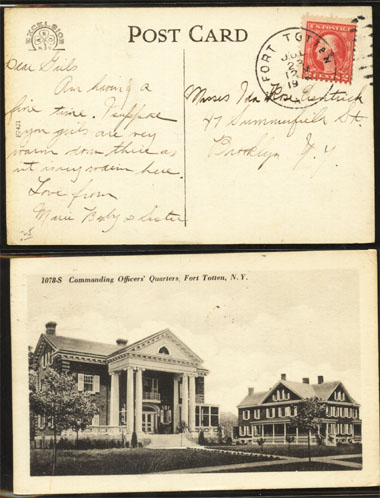 EXCELSIOR
POST CARD
FORT TOTTEN
JUL
Dear Girls
Am having a
fine time. Suppose
you girls are very
warm down there as
it is very warm here.
Love from
Marie Baby & Sister
Misses Ida Rose
47 Summerfield St.
Brooklyn N.Y
1078-S Commanding Officers' Quarters, Fort Totten, N. Y.